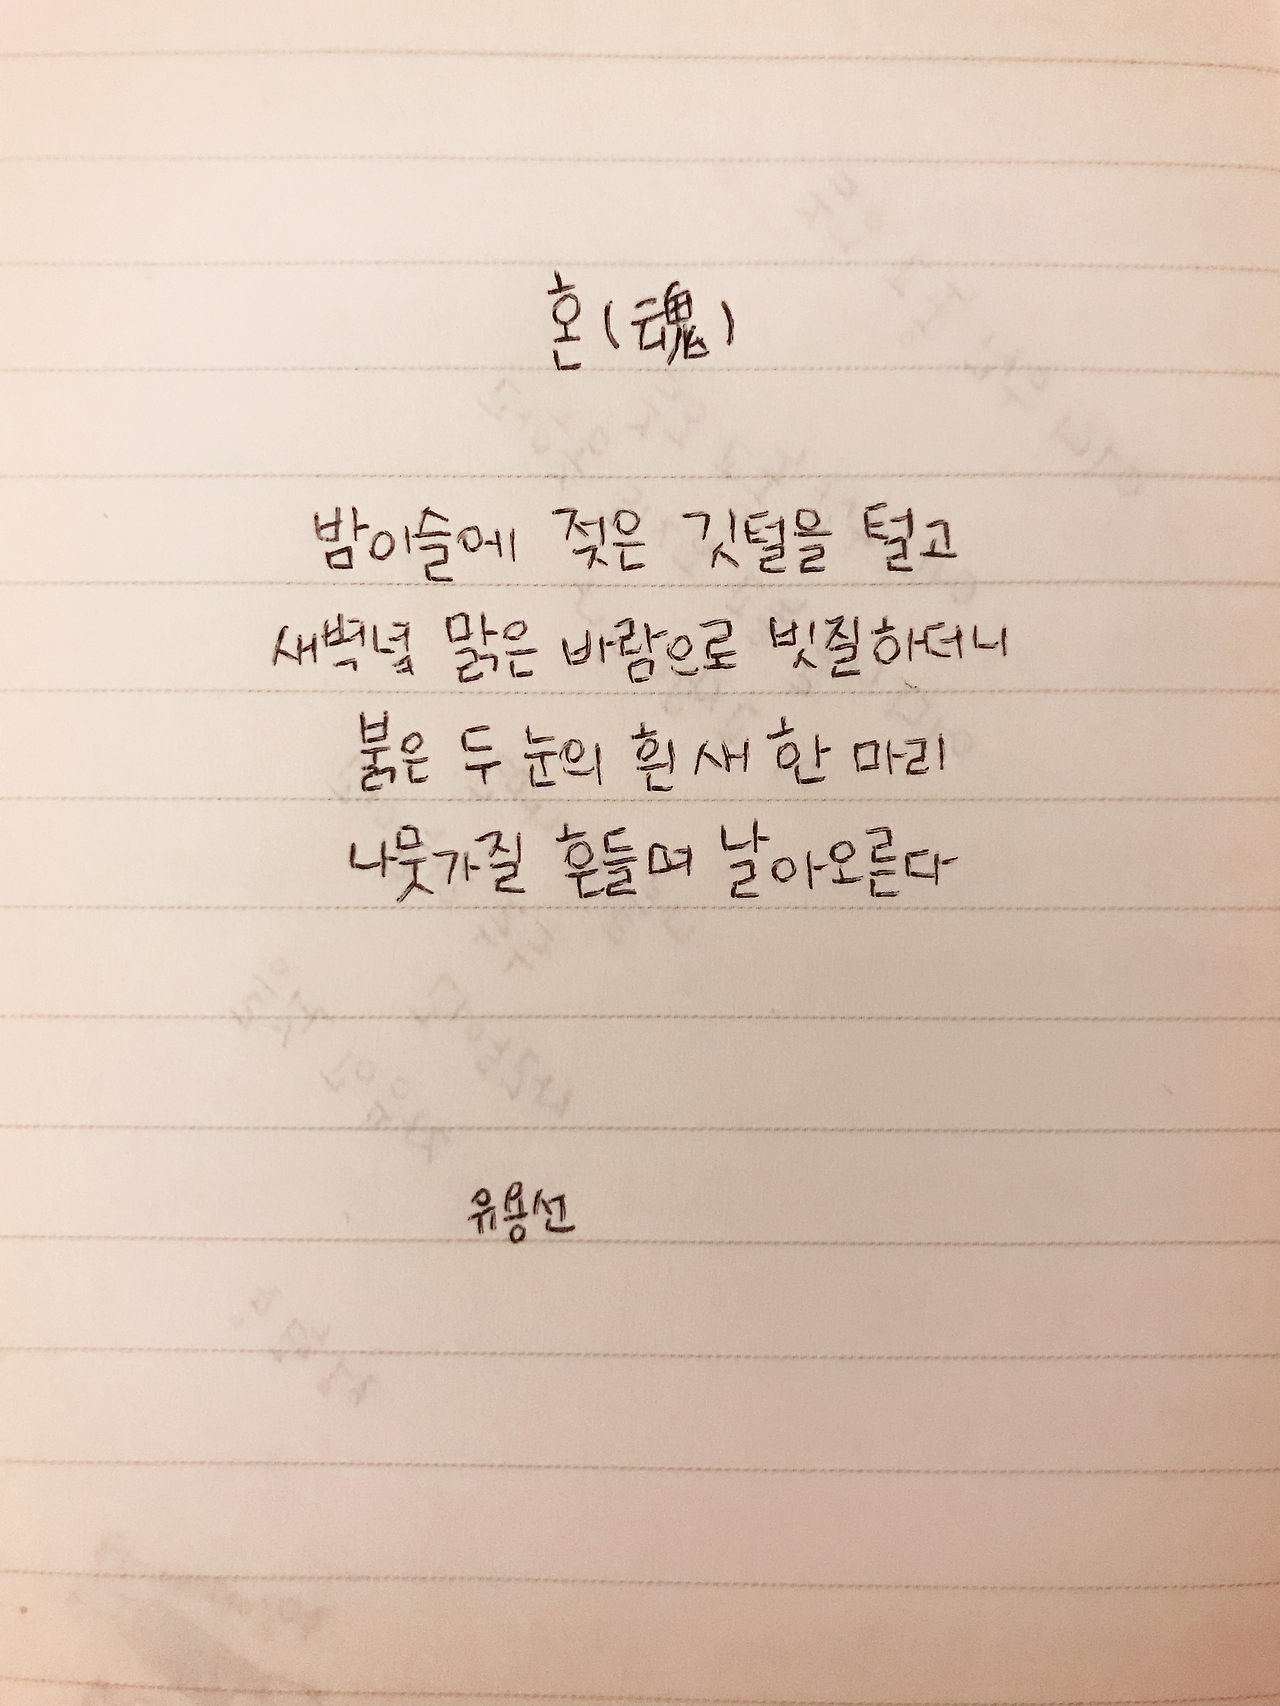 혼(魂)
밤이슬에 젖은 깃털을 털고
새벽녘 맑은 바람으로 빗질하더니
붉은 두 눈의 흰 새 한 마리
나뭇가질 흔들며 날아오른다
유용선